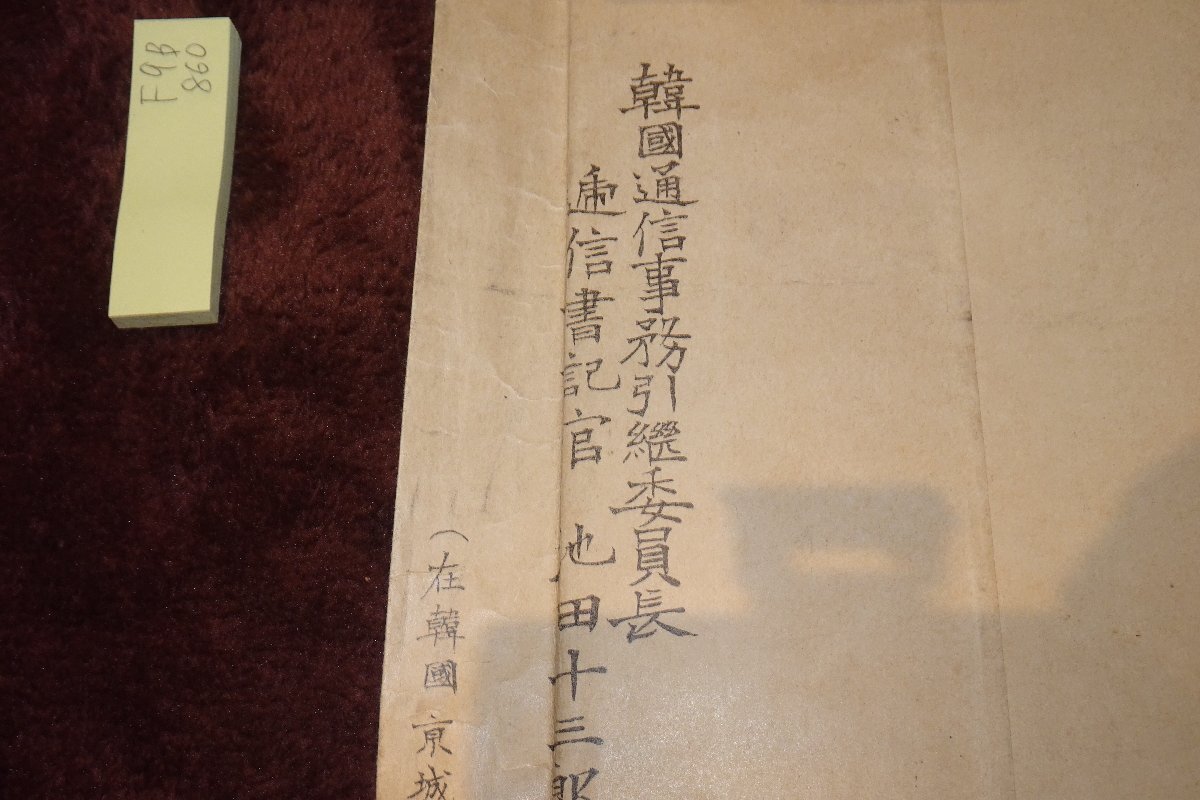 韓國通信事務引繼委員長
逓信書記官 池田十三郎
(在韓國京城
F9B
860